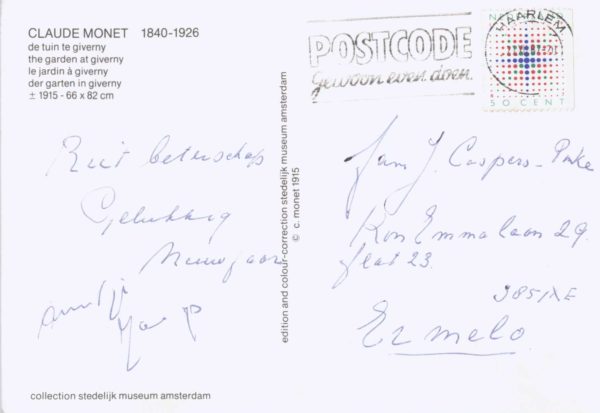 CLAUDE MONET 1840-1926
de tuin te giverny
the garden at giverny
le jardin à giverny
der garten in giverny
± 1915 - 66 x 82 cm
beterschap
Gelukkig
Nieuwjaar
collection stedelijk museum amsterdam
edition and colour-correction stedelijk museum amsterdam
© c. monet 1915
POSTCODE
gewoon even doen.
HAARLEM
50 CENT
Fam J. Caspers-
Kon Emmalaan 29
flat 23
Ermelo